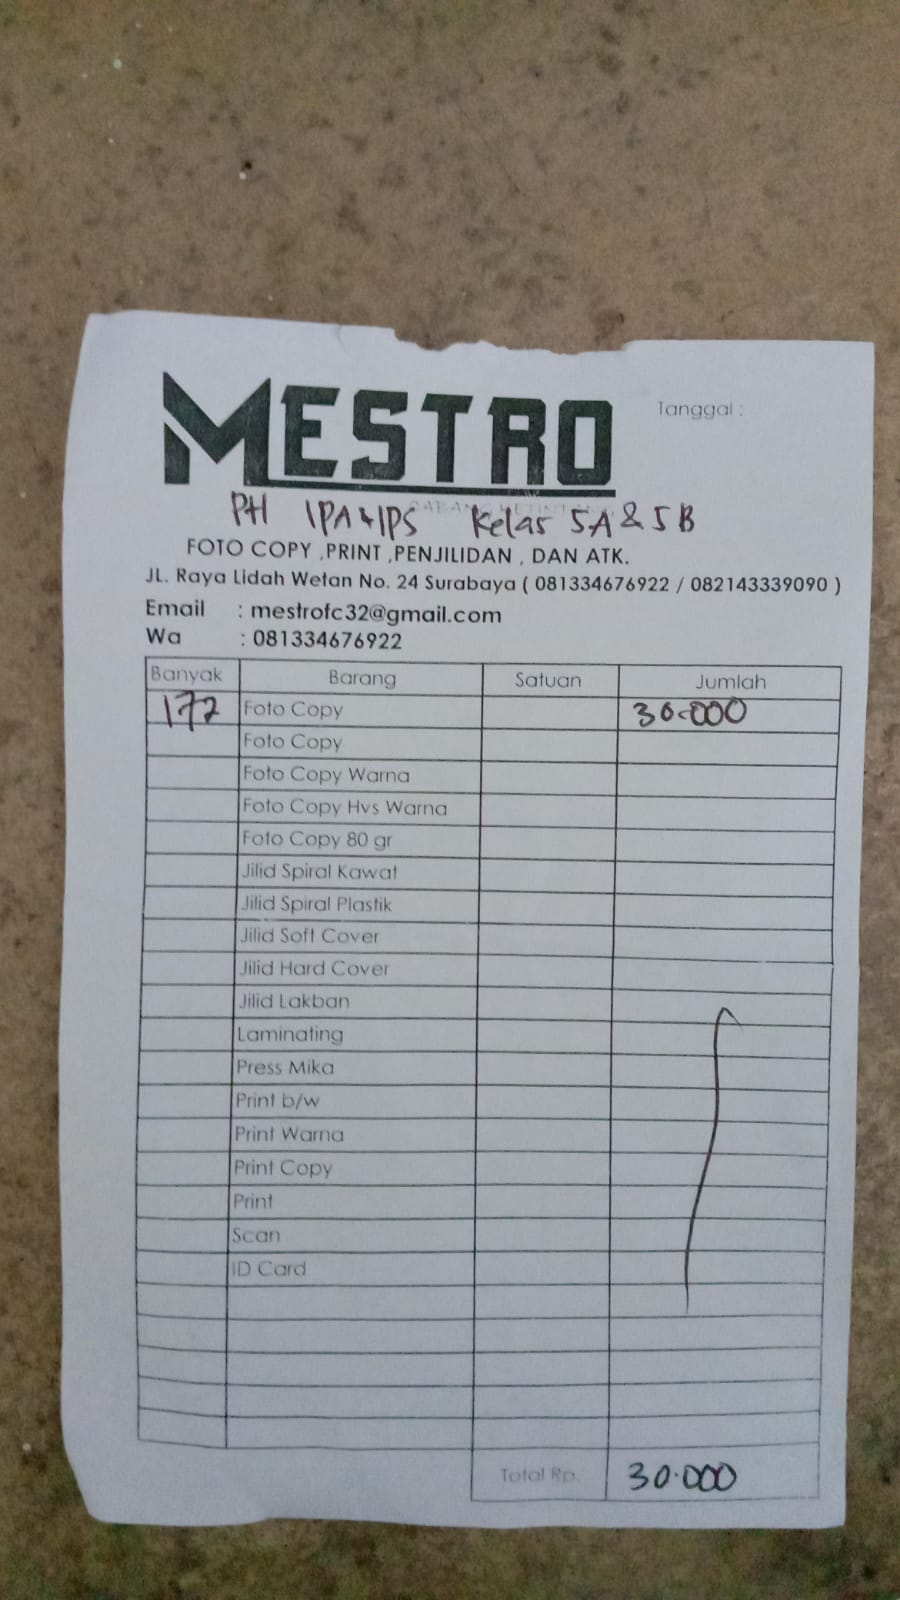 MESTRO
Tanggal :
PH IPA & IPS Kelas 5A & 5B
FOTO COPY ,PRINT ,PENJILIDAN , DAN ATK.
JL. Raya Lidah Wetan No. 24 Surabaya ( 081334676922 / 082143339090 )
Email : mestrofc32@gmail.com
Wa : 081334676922
Banyak Barang Satuan Jumlah
177 Foto Copy 30.000
Foto Copy
Foto Copy Warna
Foto Copy Hvs Warna
Foto Copy 80 gr
Jilid Spiral Kawat
Jilid Spiral Plastik
Jilid Soft Cover
Jilid Hard Cover
Jilid Lakban
Laminating
Press Mika
Print b/w
Print Warna
Print Copy
Print
Scan
ID Card
Total Rp. 30.000